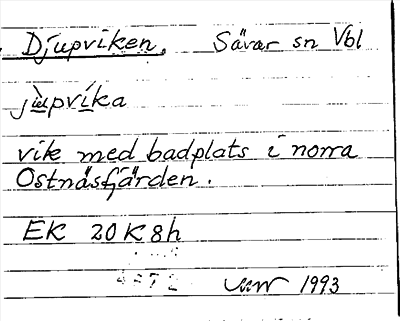 Djupviken, Sävar sn Vbl
jùpvìka
vik med badplats i norra
Ostnäsfjärden.
EK 20K8h
1993